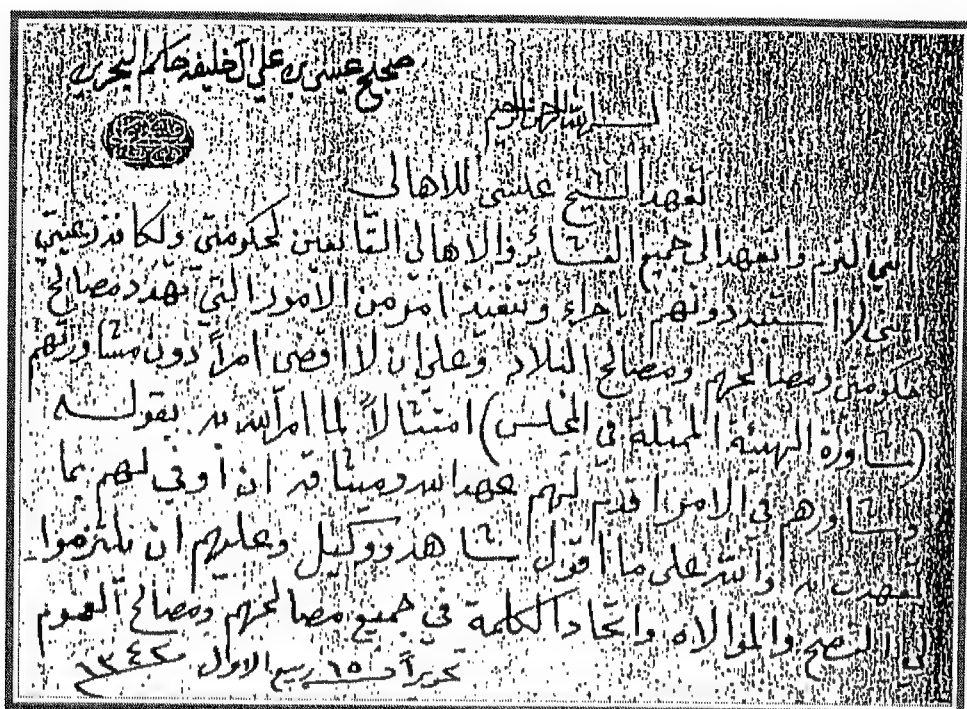 صحيح عيسى بن علي آل خليفة حاكم البحرين
بسم الله الرحمن الرحيم
تعهد الشيخ عيسى للاهالي
اني التزم واتعهد الى جميع العشائر والاهالي التابعين لحكومتي ولكافة رعيتي
انني لا استبد دونهم باجراء وتنفيذ امر من الامور التي تهدد مصالح
حكومتي ومصالحهم ومصالح البلاد وعلي ان لا اقضي امراً دون مشاورتهم
(مشاورة الهيئة الممثلة في المجلس) امتثالاً لما امر الله به بقوله
وشاورهم في الامر اقدم لهم عهد الله وميثاقه ان اوفي لهم بما
تعهدت به والله على ما اقول شاهد ووكيل وعليهم ان يلتزموا
لي النصح والموالاه واتحاد الكلمة في جميع مصالحهم ومصالح العموم
تحريراً في ١٥ ربيع الاول ١٣٤٢